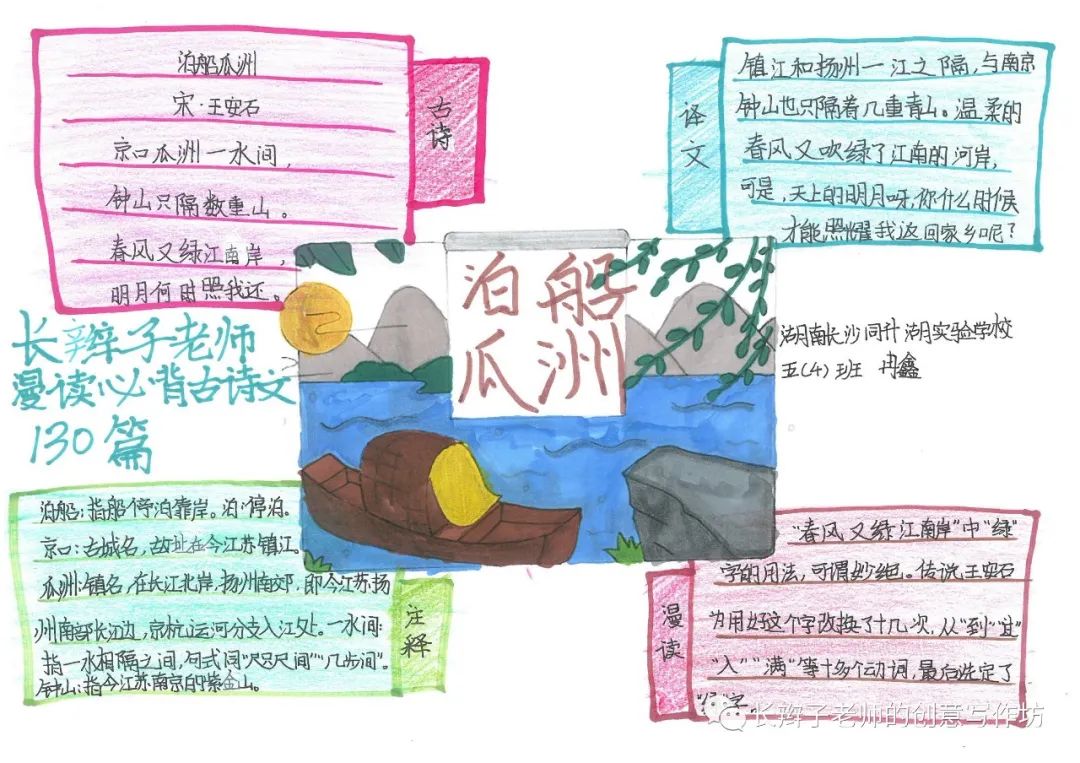 泊船瓜洲
宋·王安石
京口瓜洲一水间，
钟山只隔数重山。
春风又绿江南岸，
明月何时照我还。
古诗
译文
镇江和扬州一江之隔，与南京
钟山也只隔着几重青山。温柔的
春风又吹绿了江南的河岸，
可是，天上的明月呀，你什么时候
才能照耀我返回家乡呢？
泊船
瓜洲
长辫子老师
漫读必背古诗文
130篇
湖南长沙同升湖实验学校
五(4)班 冉鑫
泊船：指船停泊靠岸。泊：停泊。
京口：古城名，故址在今江苏镇江。
瓜洲：镇名，在长江北岸，扬州南郊，即今江苏扬
州南部长江边，京杭运河分支入江处。一水间：
指一水相隔之间，句式同“咫尺间”“几步间”。
钟山：指今江苏南京的紫金山。
注释
漫读
“春风又绿江南岸”中“绿”
字的用法，可谓妙绝。传说王安石
为用好这个字改换了十几次，从“到”“过”
“入”“满”等十多个动词，最后选定了
“绿”字。
长辫子老师的创意写作坊